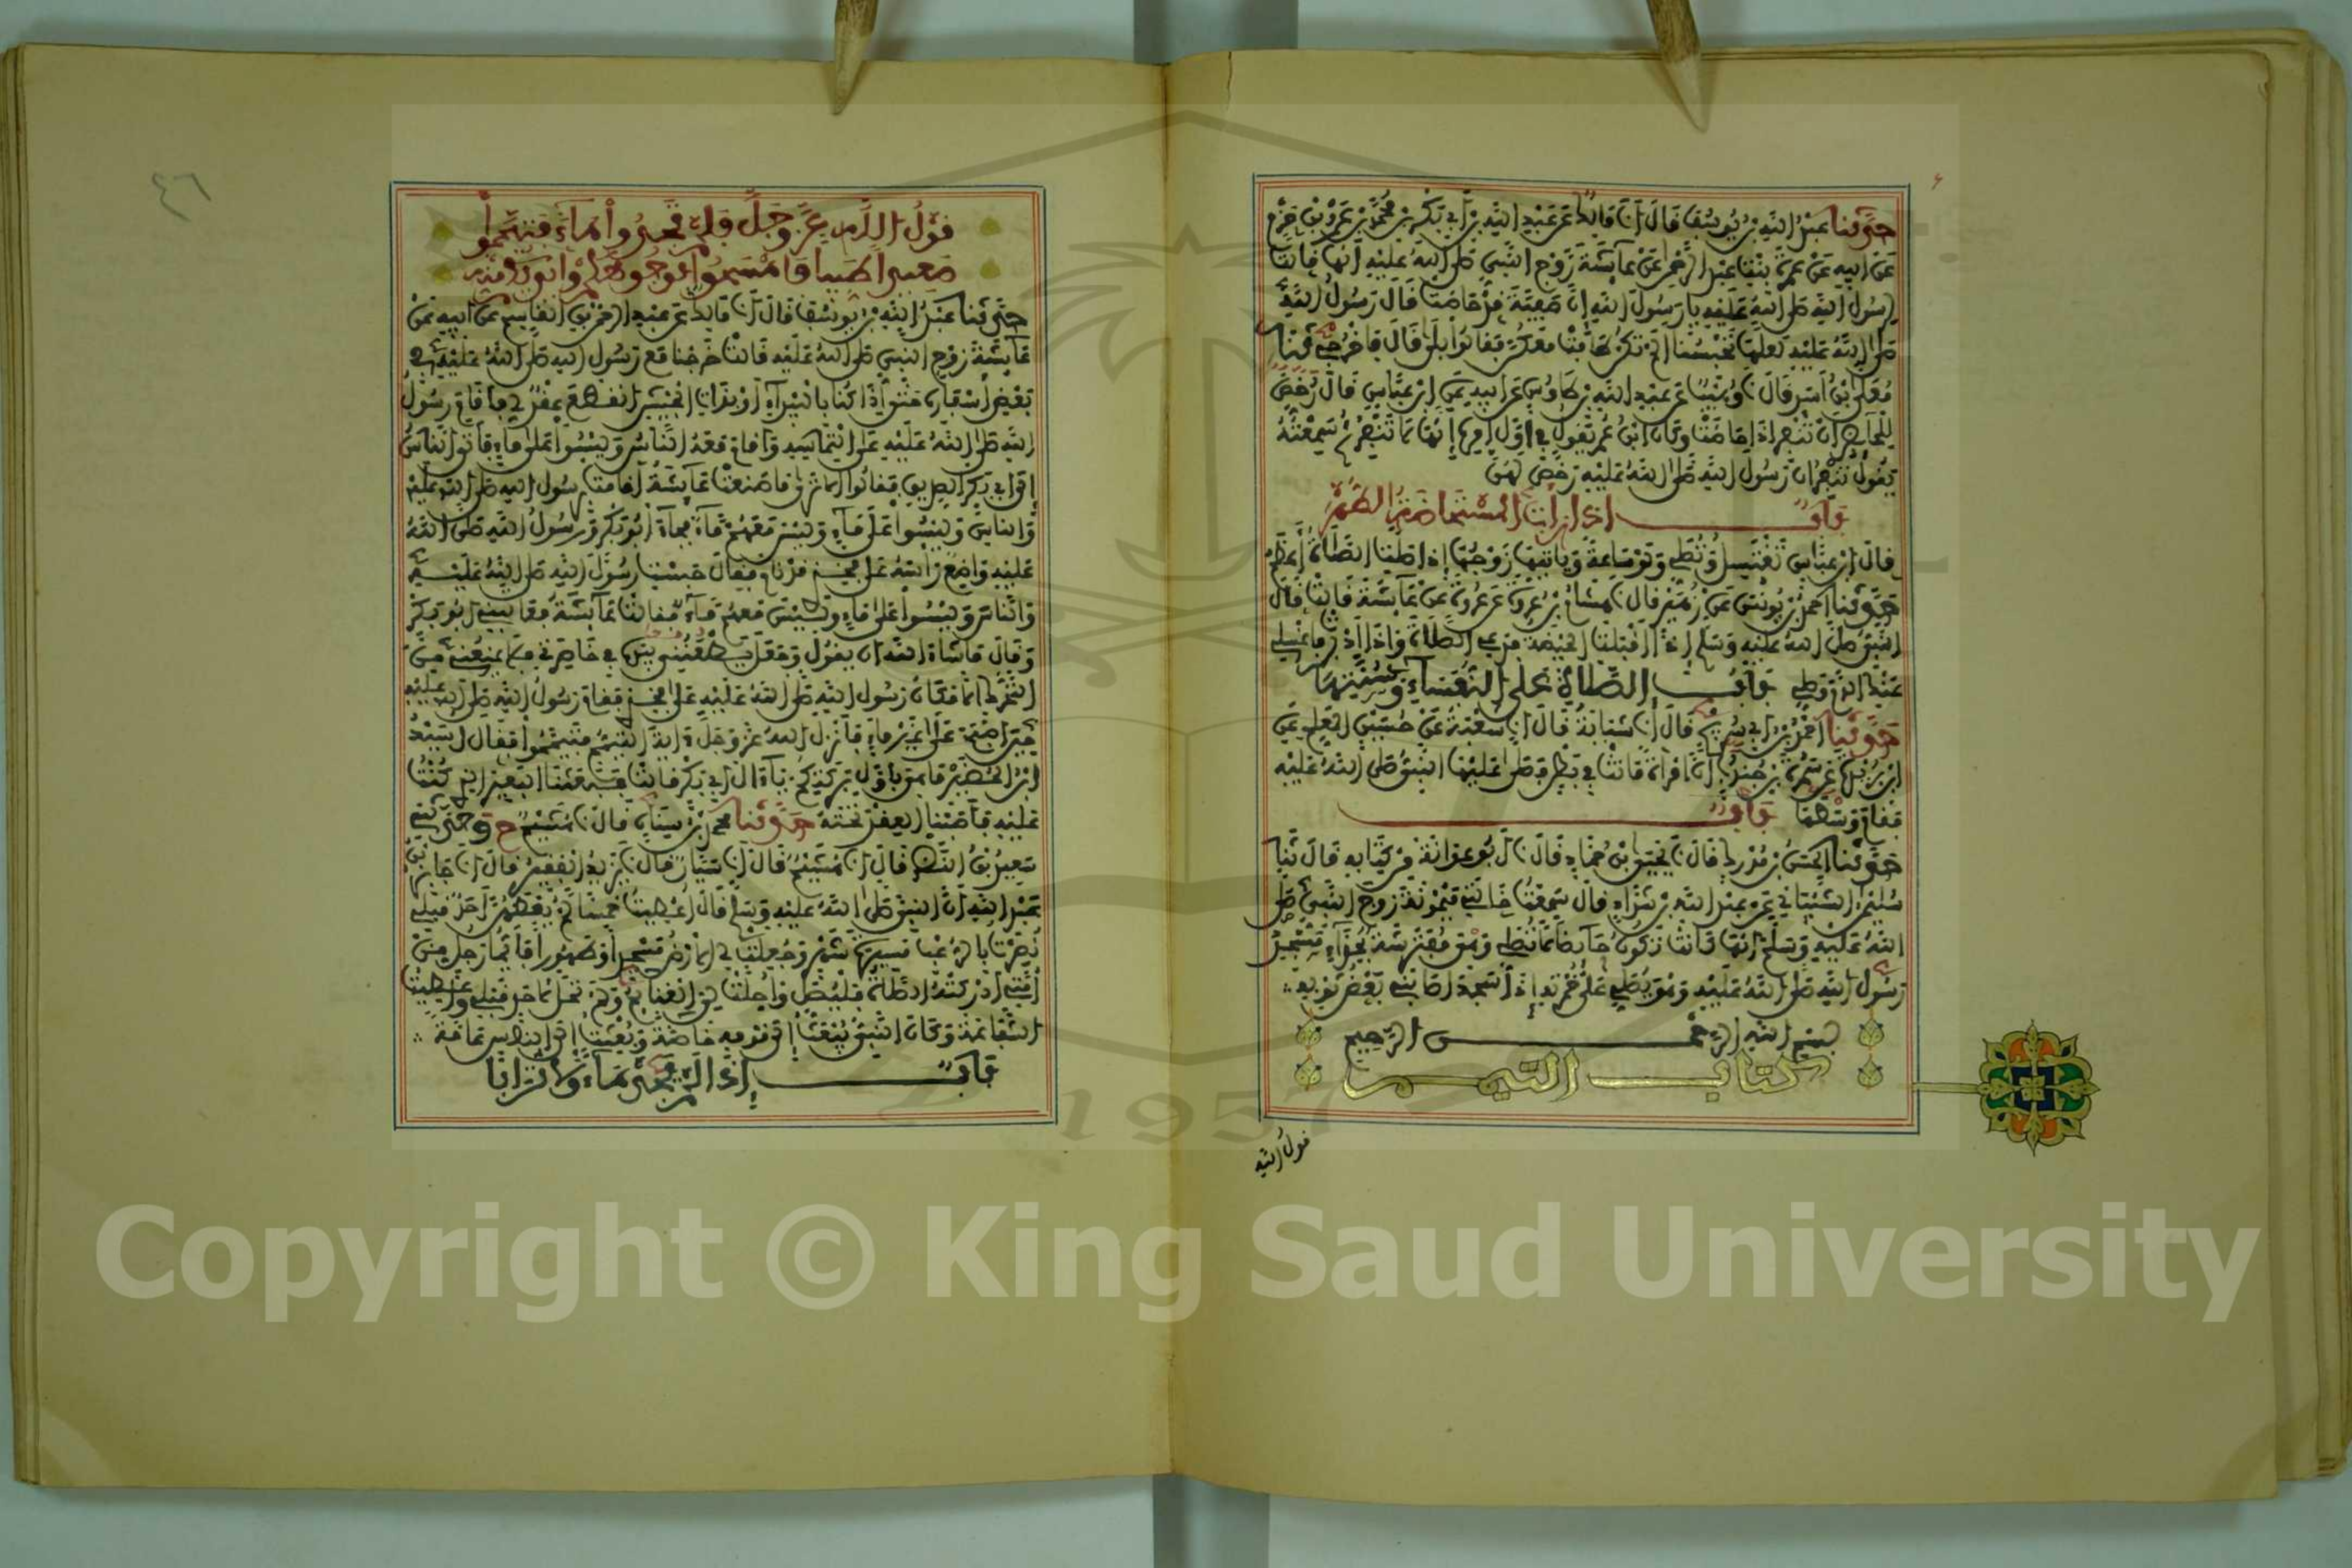 حدثنا عبد الله بن يوسف قال انا مالك عن عبد الله بن ابي بكر بن محمد بن عمرو بن حزم
عن ابيه عن عمرة بنت عبد الرحمن عن عائشة زوج النبي صلى الله عليه انها قالت
لرسول الله صلى الله عليه يا رسول الله ان صفية قد حاضت قال رسول الله
صلى الله عليه لعلها تحبسنا الم تكن طافت معكن فقالوا بلى قال فاخرجي حدثنا
معلى بن اسد قال نا وهيب عن عبد الله بن طاوس عن ابيه عن ابن عباس قال رخص
للحائض ان تنفر اذا حاضت وكان ابن عمر يقول في اول امره انها لا تنفر ثم سمعته
يقول تنفر ان رسول الله صلى الله عليه رخص لهن
باب اذا رات المستحاضة الطهر
قال ابن عباس تغتسل وتصلي ولو ساعة وياتيها زوجها اذا صلت الصلاة اعظم
حدثنا احمد بن يونس عن زهير قال نا هشام بن عروة عن عروة عن عائشة قالت قال
النبي صلى الله عليه وسلم اذا اقبلت الحيضة فدعي الصلاة واذا ادبرت فاغسلي
عنك الدم وصلي باب الصلاة على النفساء وسنتها
حدثنا احمد بن ابي سريج قال انا شبابة قال انا شعبة عن حسين المعلم عن
ابن بريدة عن سمرة بن جندب ان امراة ماتت في بطن فصلى عليها النبي صلى الله عليه
فقام وسطها باب
حدثنا الحسن بن مدرك قال نا يحيى بن حماد قال نا ابو عوانة من كتابه قال نا
سليمن الشيباني عن عبد الله بن شداد قال سمعت خالتي ميمونة زوج النبي صلى
الله عليه وسلم انها كانت تكون حائضا لا تصلي وهي مفترشة بحذاء مسجد
رسول الله صلى الله عليه وهو يصلي على خمرته اذا سجد اصابني بعض ثوبه
بسم الله الرحمن الرحيم
كتاب التيمم
قول الله
٤٦
قول الله عز وجل فلم تجدوا ماء فتيمموا
صعيدا طيبا فامسحوا بوجوهكم وايديكم منه
حدثنا عبد الله بن يوسف قال انا مالك عن عبد الرحمن بن القاسم عن ابيه عن
عائشة زوج النبي صلى الله عليه قالت خرجنا مع رسول الله صلى الله عليه في
بعض اسفاره حتى اذا كنا بالبيداء او بذات الجيش انقطع عقد لي فاقام رسول
الله صلى الله عليه على التماسه واقام معه الناس وليسوا على ماء فاتى الناس
الى ابي بكر الصديق فقالوا الا ترى ما صنعت عائشة اقامت برسول الله صلى الله عليه
والناس وليسوا على ماء وليس معهم ماء فجاء ابو بكر ورسول الله صلى الله
عليه واضع راسه على فخذي قد نام فقال حبست رسول الله صلى الله عليه
والناس وليسوا على ماء وليس معهم ماء فقالت عائشة فعاتبني ابو بكر
وقال ما شاء الله ان يقول وجعل يطعنني بيده في خاصرتي فلا يمنعني من
التحرك الا مكان رسول الله صلى الله عليه على فخذي فقام رسول الله صلى الله عليه
حين اصبح على غير ماء فانزل الله عز وجل اية التيمم فتيمموا فقال اسيد
ابن الحضير ما هي باول بركتكم يا ال ابي بكر قالت فبعثنا البعير الذي كنت
عليه فاصبنا العقد تحته حدثنا محمد بن سنان قال نا هشيم ح وحدثني
سعيد بن النضر قال انا هشيم قال انا سيار قال نا يزيد الفقير قال انا جابر بن
عبد الله ان النبي صلى الله عليه وسلم قال اعطيت خمسا لم يعطهن احد قبلي
نصرت بالرعب مسيرة شهر وجعلت لي الارض مسجدا وطهورا فايما رجل من
امتي ادركته الصلاة فليصل واحلت لي الغنائم ولم تحل لاحد قبلي واعطيت
الشفاعة وكان النبي يبعث الى قومه خاصة وبعثت الى الناس عامة
باب اذا لم يجد ماء ولا ترابا